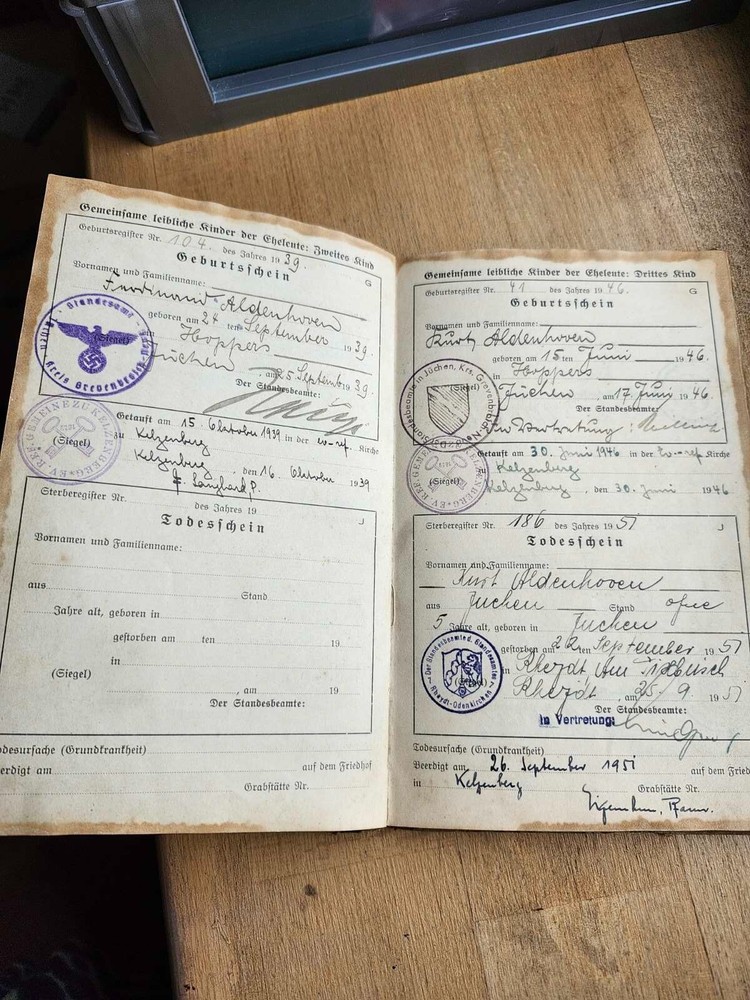 Gemeinsame leibliche Kinder der Eheleute: Zweites Kind
Geburtsregister Nr. 104. des Jahres 1939.
G
Geburtsschein
Vornamen und Familienname:
Ferdinand Aldenhoven
geboren am 24 ten September 1939.
in Hoppers
(Siegel)
Standesamt
Kreis Grevenbroich-Neuß
Jüchen, am 25 Septemb 1939.
Der Standesbeamte:
Getauft am 15. Oktober 1939 in der ev-ref. Kirche
zu Kelzenberg
(Siegel)
EV. REF. GEMEINE ZU KELZENBERG
Kelzenberg, den 16. Oktober 1939
Sterberegister Nr.
des Jahres 19
Todesschein
Vornamen und Familienname:
aus
Stand
Jahre alt, geboren in
gestorben am ten 19
in
(Siegel)
, am 19
Der Standesbeamte:
Todesursache (Grundkrankheit)
Beerdigt am auf dem Friedhof
Grabstätte Nr.
Gemeinsame leibliche Kinder der Eheleute: Drittes Kind
Geburtsregister Nr. 41 des Jahres 1946.
G
Geburtsschein
Vornamen und Familienname:
Kurt Aldenhoven
geboren am 15 ten Juni 1946.
in Hoppers
(Siegel)
Standesbeamte in Jüchen, Krs. Grevenbroich-Neuß
Jüchen, am 17. Juny 1946.
Der Standesbeamte:
In Vertretung:
Getauft am 30. Juni 1946 in der Ev-ref Kirche
Kelzenberg
(Siegel)
Kelzenberg, den 30. Juni 1946
Sterberegister Nr. 186 des Jahres 1951
Todesschein
Vornamen und Familienname:
Kurt Aldenhoven
aus Jüchen Stand ohne
5 Jahre alt, geboren in Jüchen
gestorben am 22 ten September 1951
in Rheydt, Am
Der Standesbeamte d. Standesamtes
Rheydt-Odenkirchen
Rheydt, am 25. 9. 1951
Der Standesbeamte:
In Vertretung:
Todesursache (Grundkrankheit)
Beerdigt am 26. September 1951 auf dem Fried
in Kelzenberg
Grabstätte Nr.